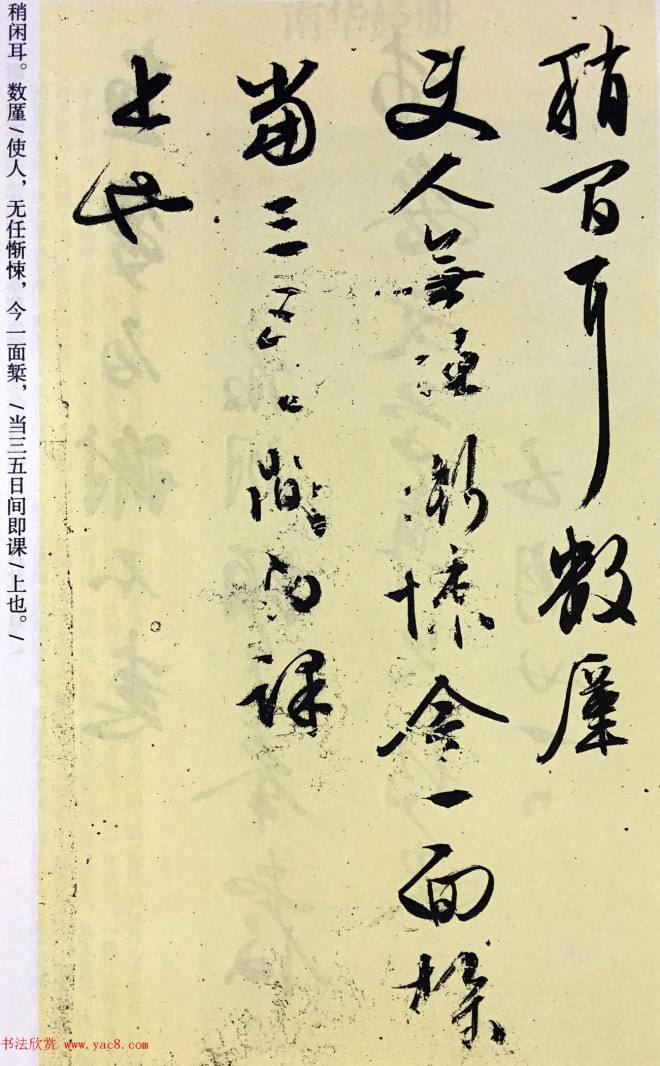 稍閒耳數廑
使人無任慚悚今一面槧
當三五日間即課
上也
稍闲耳。数廑/使人，无任惭悚，今一面椠，/当三五日间即课/上也。/
书法欣赏 www.yac8.com